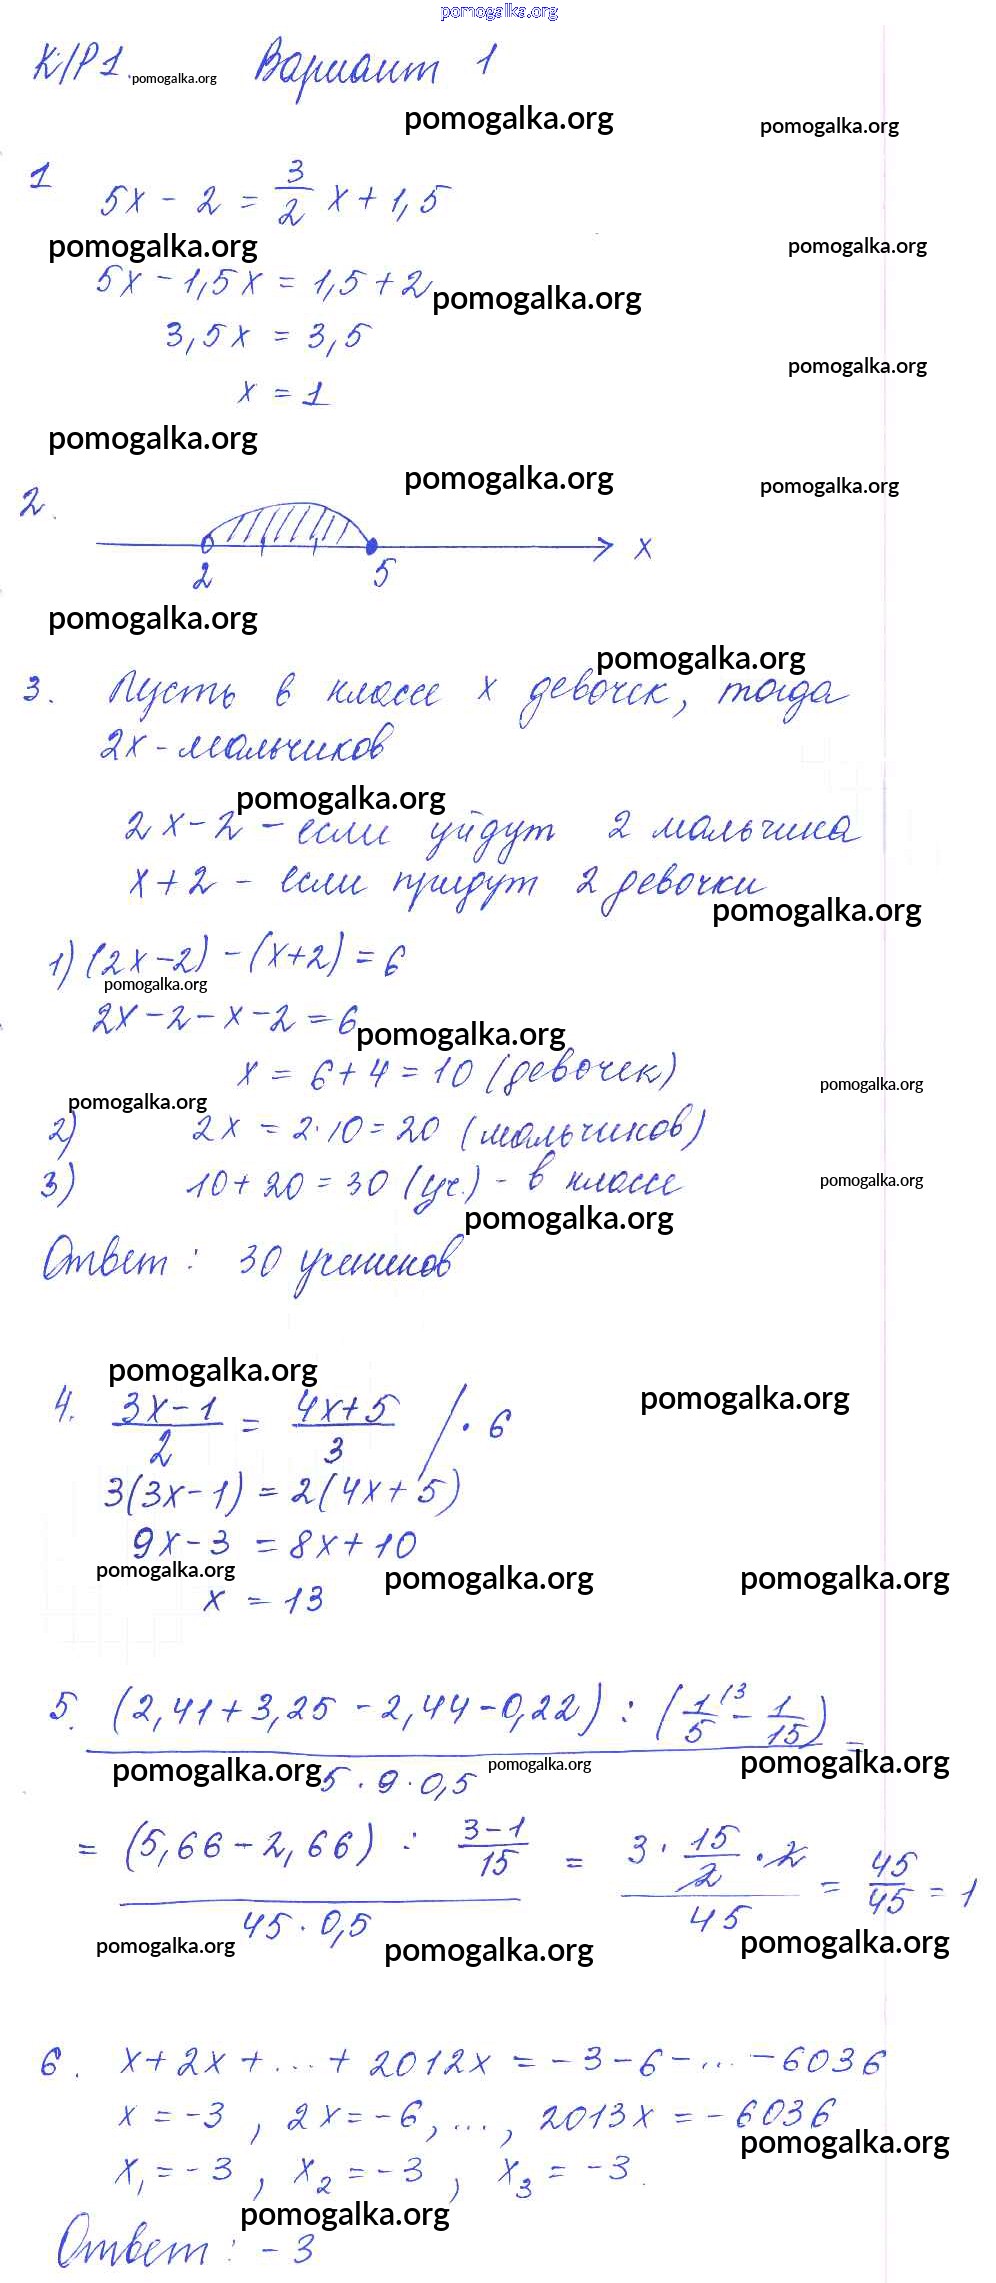 pomogalka.org
К/Р1. pomogalka.org Вариант 1
pomogalka.org pomogalka.org
1 5x - 2 = 3/2 x + 1,5
pomogalka.org pomogalka.org
5x - 1,5x = 1,5 + 2 pomogalka.org
3,5x = 3,5
pomogalka.org
x = 1
pomogalka.org
pomogalka.org pomogalka.org
2.
x
2 5
pomogalka.org
pomogalka.org
3. Пусть в классе x девочек, тогда
2x - мальчиков
pomogalka.org
2x - 2 - если уйдут 2 мальчика
x + 2 - если придут 2 девочки
pomogalka.org
1) (2x - 2) - (x + 2) = 6
pomogalka.org
2x - 2 - x - 2 = 6 pomogalka.org
x = 6 + 4 = 10 (девочек) pomogalka.org
pomogalka.org
2) 2x = 2 · 10 = 20 (мальчиков)
3) 10 + 20 = 30 (уч.) - в классе pomogalka.org
pomogalka.org
Ответ: 30 учеников
pomogalka.org pomogalka.org
4. (3x - 1)/2 = (4x + 5)/3 / · 6
3(3x - 1) = 2(4x + 5)
9x - 3 = 8x + 10
pomogalka.org pomogalka.org pomogalka.org
x = 13
5. (2,41 + 3,25 - 2,44 - 0,22) : (1/5 /3 - 1/15) =
pomogalka.org 5 · 9 · 0,5 pomogalka.org pomogalka.org
= (5,66 - 2,66) : (3 - 1)/15 = 3 · 15/2 · 2 = 45/45 = 1
45 · 0,5 45
pomogalka.org pomogalka.org pomogalka.org
6. x + 2x + ... + 2012x = - 3 - 6 - ... - 6036
x = -3, 2x = -6, ..., 2013x = - 6036
pomogalka.org
x₁ = -3, x₂ = -3, x₃ = -3.
pomogalka.org
Ответ: -3